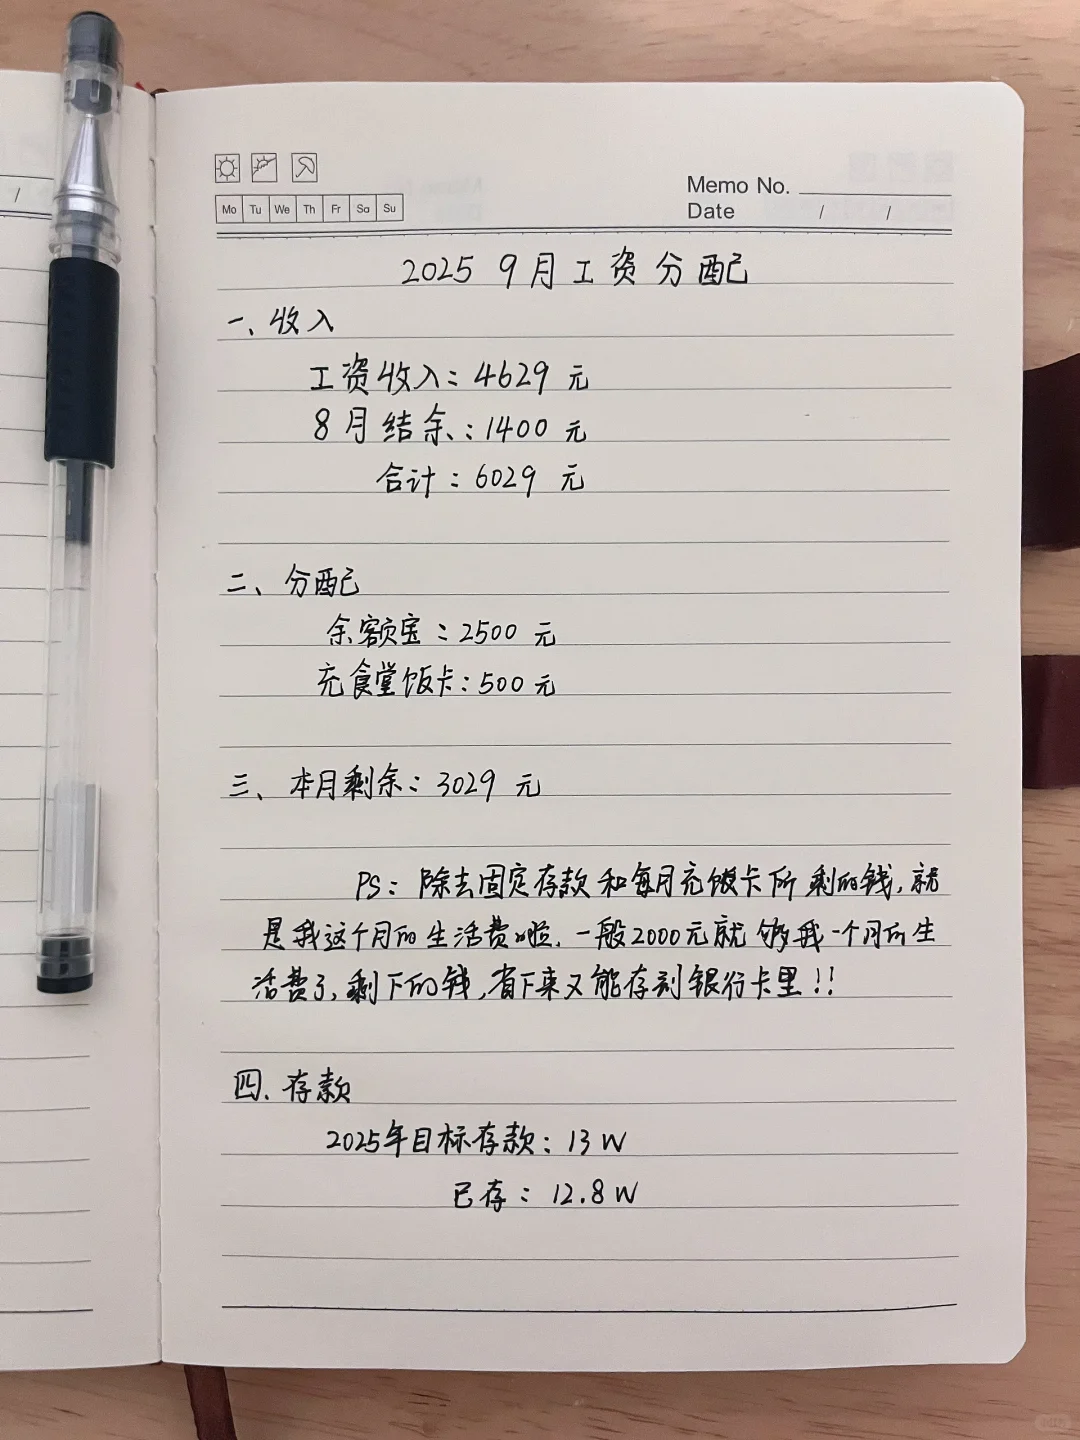 Mo Tu We Th Fr Sa Su
Memo No.
Date / /
2025 9月工资分配
一、收入
工资收入：4629 元
8月结余：1400 元
合计：6029 元
二、分配
余额宝：2500 元
充食堂饭卡：500元
三、本月剩余：3029 元
PS：除去固定存款和每月充饭卡所剩的钱，就
是我这个月的生活费啦。一般2000元就够我一个月的生
活费了，剩下的钱，省下来又能存到银行卡里！！
四、存款
2025年目标存款：13W
已存：12.8W